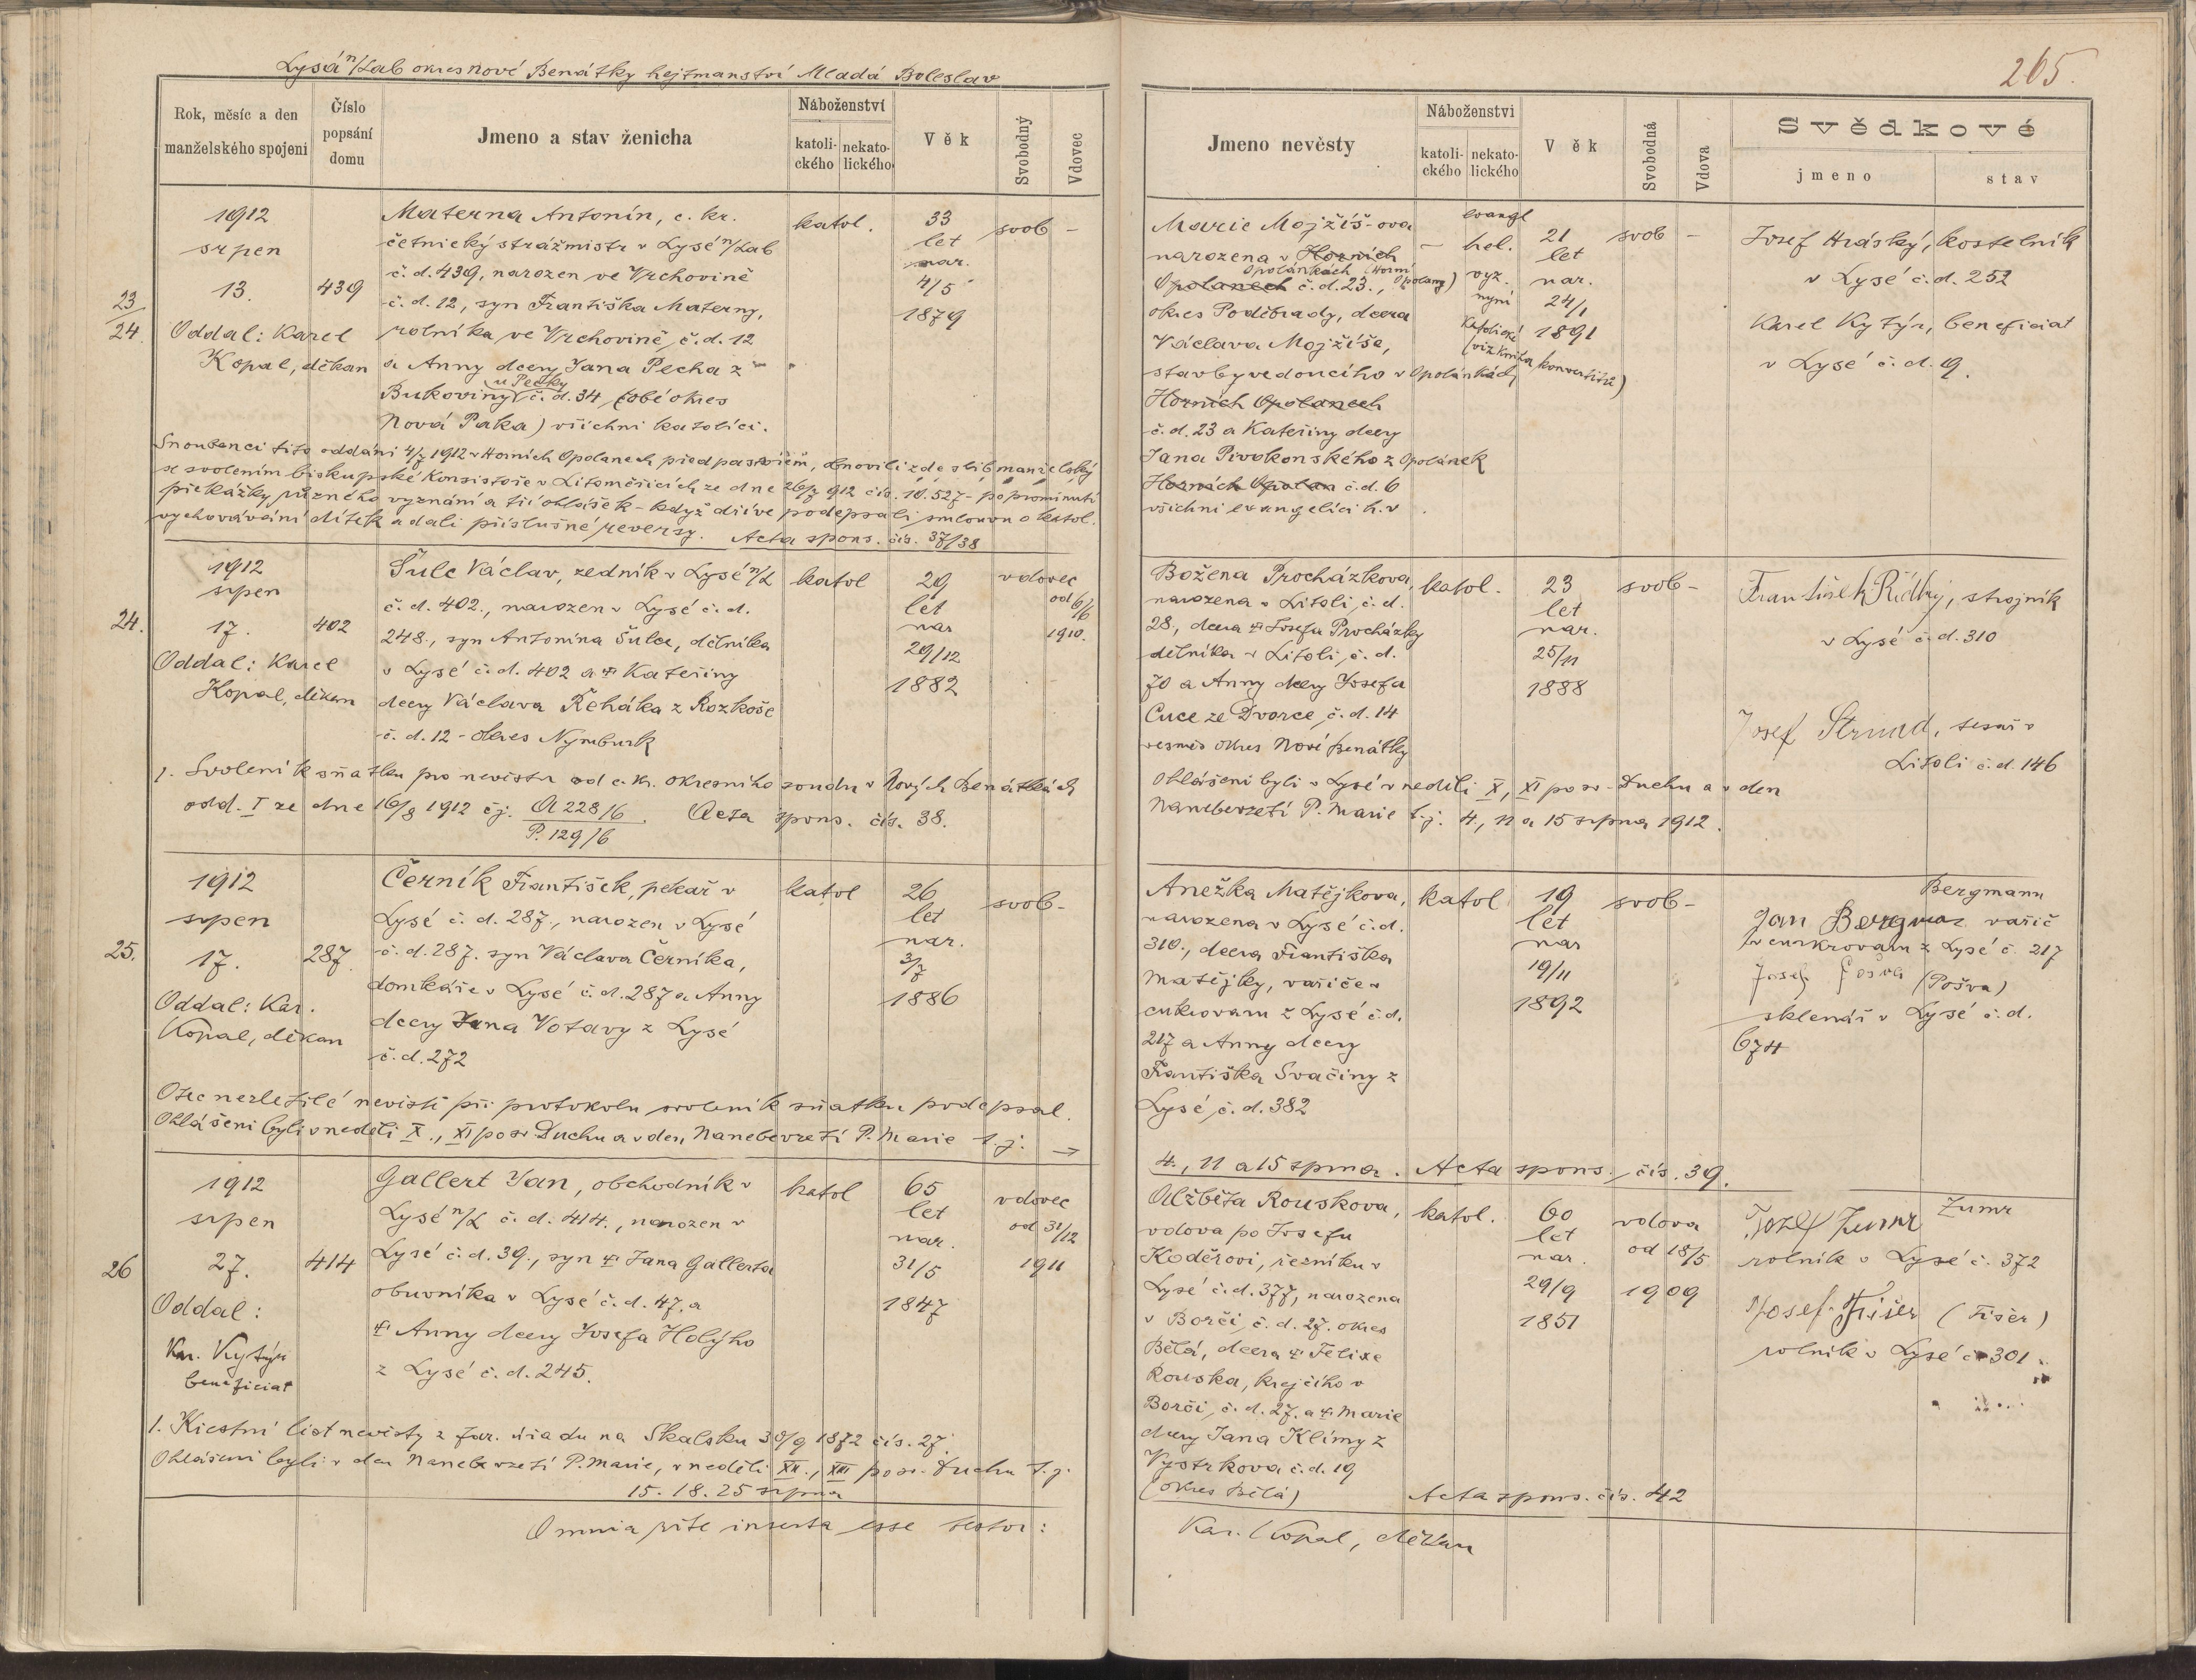 Lysá n/Lab okres Nové Benátky hejtmanství Mladá Boleslav
Rok, měsíc a den
manželského spojení
Číslo
popsání
domu
Jmeno a stav ženicha
Náboženství
katoli-
ckého
nekato-
lického
Věk
Svobodný
Vdovec
23/24.
1912
srpen
13.
Oddal: Karel
Kopal, děkan
439
Materna Antonín, c. kr.
četnický strážmistr v Lysé n/Lab
č. d. 439, narozen ve Vrchovině
č. d. 12, syn Františka Materny,
rolníka ve Vrchovině č. d. 12
a Anny dcery Jana Pecha z
u Pecky
Bukoviny č. d. 34 (obé okres
Nová Paka) všichni katolíci.
katol.
33
let
nar.
4/5
1879
svob -
Snoubenci tito oddáni 4/7 1912 v Horních Opolanech před pastořem, obnovili zde slib manželský
se svolením biskupské Konsistoře v Litoměřicích ze dne 26/7 912 čís. 10.527 - po prominutí
překážky různého vyznání a tří ohlášek - když dříve podepsali smlouvu o katol.
vychovávání dítek a dali příslušné reversy. Acta spons. čís. 37/38
24.
1912
srpen
17.
Oddal: Karel
Kopal, děkan
402
Šulc Václav, zedník v Lysé n/L
č. d. 402., narozen v Lysé č. d.
248., syn Antonína Šulce, dělníka
v Lysé č. d. 402 a † Kateřiny
dcery Václava Řeháka z Rozkoše
č. d. 12 - okres Nymburk
katol
29
let
nar
29/12
1882
vdovec
od 6/6
1910.
1. Svolení k sňatku pro nevěstu od c. kr. okresního soudu v Nových Benátkách
odd. I ze dne 16/8 1912 čj. A 228/6
P. 129/6
Acta spons. čís. 38.
25.
1912
srpen
17.
Oddal: Kar.
Kopal, děkan
287
Černík František, pekař v
Lysé č. d. 287., narozen v Lysé
č. d. 287. syn Václava Černíka,
domkáře v Lysé č. d. 287 a Anny
dcery Jana Votavy z Lysé
č. d. 272
katol
26
let
nar.
3/7
1886
svob -
Otec nezletilé nevěstě při protokolu svolení k sňatku podepsal.
Ohlášeni byli v neděli X., XI po sv. Duchu a v den Nanebevzetí P. Marie t. j. →
26
1912
srpen
27.
Oddal:
Kar. Kytýr
beneficiat
414
Gallert Jan, obchodník v
Lysé n/L č. d. 414., narozen v
Lysé č. d. 39., syn † Jana Gallerta
obuvníka v Lysé č. d. 47. a
† Anny dcery Josefa Holýho
z Lysé č. d. 245.
katol
65
let
nar.
31/5
1847
vdovec
od 31/12
1911
1. Křestní list nevěsty z far. úřadu na Skalsku 30/9 1872 čís. 27.
Ohlášeni byli v den Nanebevzetí P. Marie, v neděli XII., XIII po sv. Duchu t. j.
15. 18. 25 srpna
Omnia rite inserta esse testor:
265.
Jmeno nevěsty
Náboženství
katoli-
ckého
nekato-
lického
Věk
Svobodná
Vdova
Svědkové
jmeno
stav
Marie Mojžíš-ova
narozena v Horních
Opolánkách (Horní
Opolanech č. d. 23., Opolany)
okres Poděbrady, dcera
Václava Mojžíše,
stavbyvedoucího v Opolánkách
Horních Opolanech
č. d. 23 a Kateřiny dcery
Jana Pivokonského z Opolánek
Horních Opolan č. d. 6
všichni evangelíci h. v
-
evangl
hel.
vyz.
nyní
katolické
(viz Kniha konvertitů)
21
let
nar.
24/1
1891
svob -
Josef Hráský, kostelník
v Lysé č. d. 252
Karel Kytýr, beneficiat
v Lysé č. d. 9.
Božena Procházkova,
narozena v Litoli č. d.
28., dcera † Josefa Procházky
dělníka v Litoli, č. d.
70 a Anny dcery Josefa
Cuce ze Dvorce, č. d. 14
vesměs okres Nové Benátky
katol.
23
let
nar.
25/11
1888
svob -
František Řídký, strojník
v Lysé č. d. 310
Josef Strnad, tesař v
Litoli č. d. 146
Ohlášeni byli v Lysé v neděli X, XI po sv. Duchu a v den
Nanebevzetí P. Marie t. j. 4., 11 a 15 srpna 1912.
Anežka Matějkova,
narozena v Lysé č. d.
310., dcera Františka
Matějky, vařiče v
cukrovaru z Lysé č. d.
217 a Anny dcery
Františka Svačiny z
Lysé, č. d. 382
katol
19
let
nar
19/11
1892
svob -
Bergmann
Jan Bergman vařič
v cukrovaru z Lysé č. 217
Josef Pošva (Pošva)
sklenář v Lysé č. d.
674
4., 11 a 15 srpna. Acta spons. čís. 39.
Alžběta Rouskova,
vdova po Josefu
Koděrovi, řezníku v
Lysé č. d. 377, narozena
v Borči, č. d. 27. okres
Bělá, dcera † Felixe
Rouska, krejčího v
Borči, č. d. 27. a † Marie
dcery Jana Klímy z
Vystrkova č. d. 19
(okres Bělá)
katol.
60
let
nar.
29/9
1851
vdova
od 18/5
1909
Zumr
Josef Zumr
rolník v Lysé č. 372
Josef Fišer (Fišer)
rolník v Lysé č. 301
Acta spons. čís. 42
Kar. Kopal, děkan